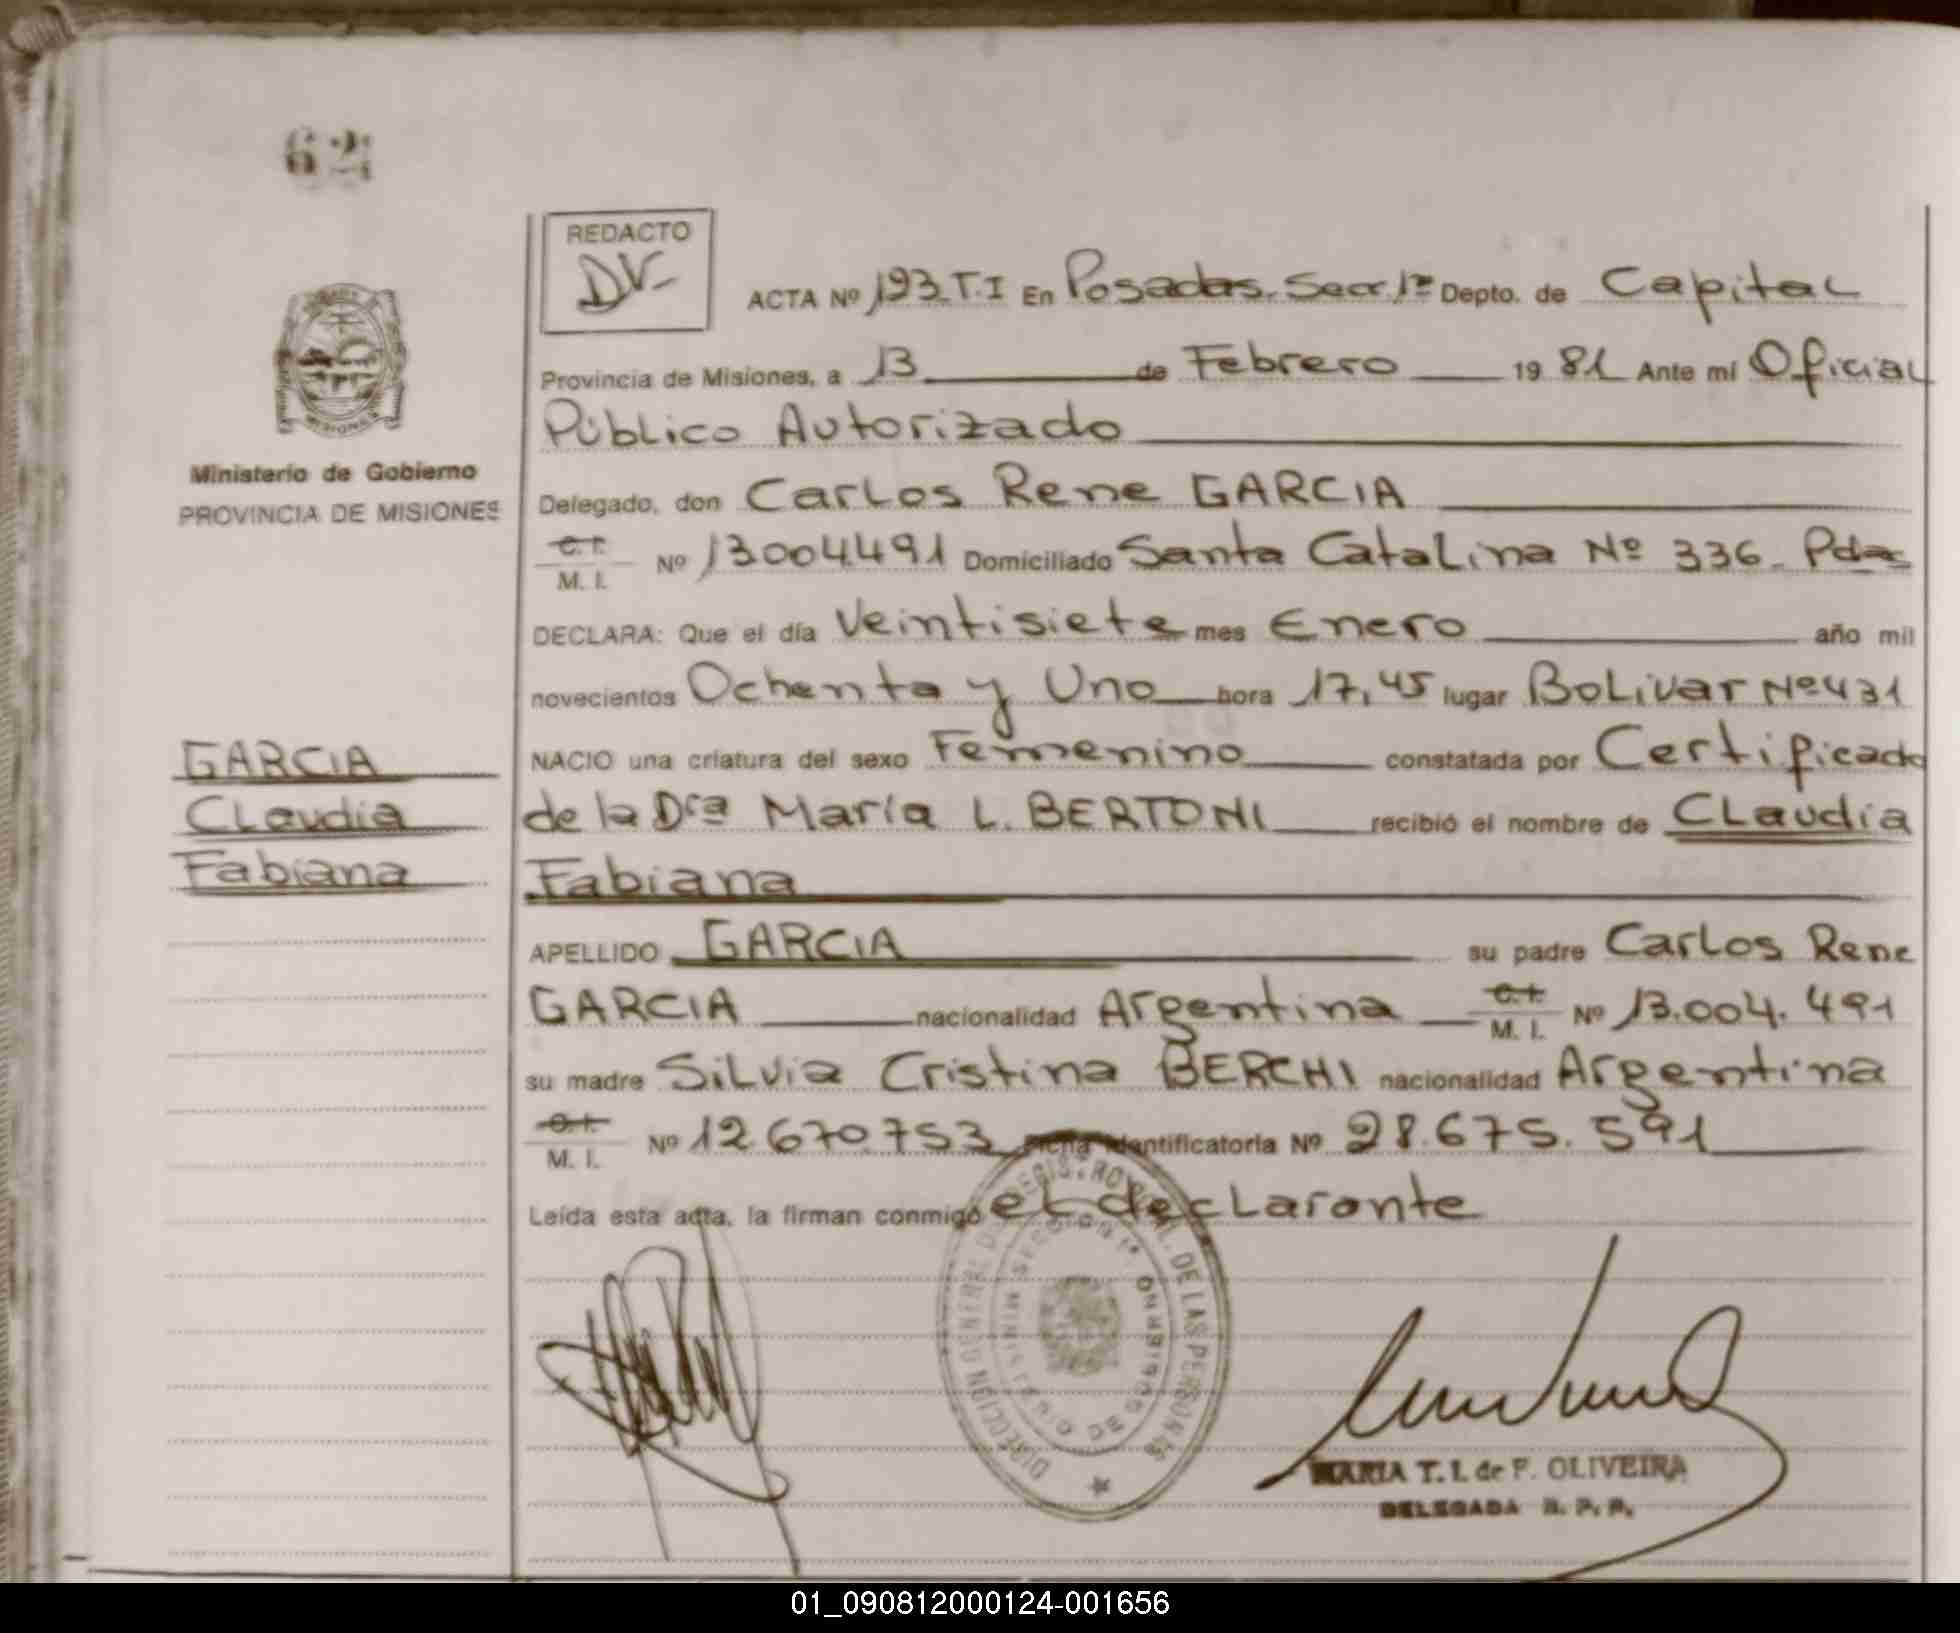 62
REDACTO
DV
ACTA Nº 193 T.I En Posadas. Secc. 1ª Depto. de Capital
Provincia de Misiones, a 13 de Febrero 1981 Ante mi Oficial
Público Autorizado
Ministerio de Gobierno
PROVINCIA DE MISIONES
Delegado, don Carlos Rene GARCIA
C. I.
M. I. Nº 13004491 Domiciliado Santa Catalina Nº 336 - Pdas
DECLARA: Que el día Veintisiete mes Enero año mil
novecientos Ochenta y Uno hora 17,45 lugar Bolivar Nº 431
GARCIA
Claudia
Fabiana
NACIO una criatura del sexo Femenino constatada por Certificado
de la Dra María L. BERTONI recibió el nombre de Claudia
Fabiana
APELLIDO GARCIA su padre Carlos Rene
GARCIA nacionalidad Argentina C. I. M. I. Nº 13.004.491
su madre Silvia Cristina BERCHI nacionalidad Argentina
C. I.
M. I. Nº 12.670.753 Ficha Identificatoria Nº 28.675.591
Leída esta acta, la firman conmigo el declarante
DIRECCION GENERAL DE REGISTRO DE LAS PERSONAS
MINISTERIO DE GOBIERNO
MARIA T. I. de F. OLIVEIRA
DELEGADA R. P. P.
01_090812000124-001656